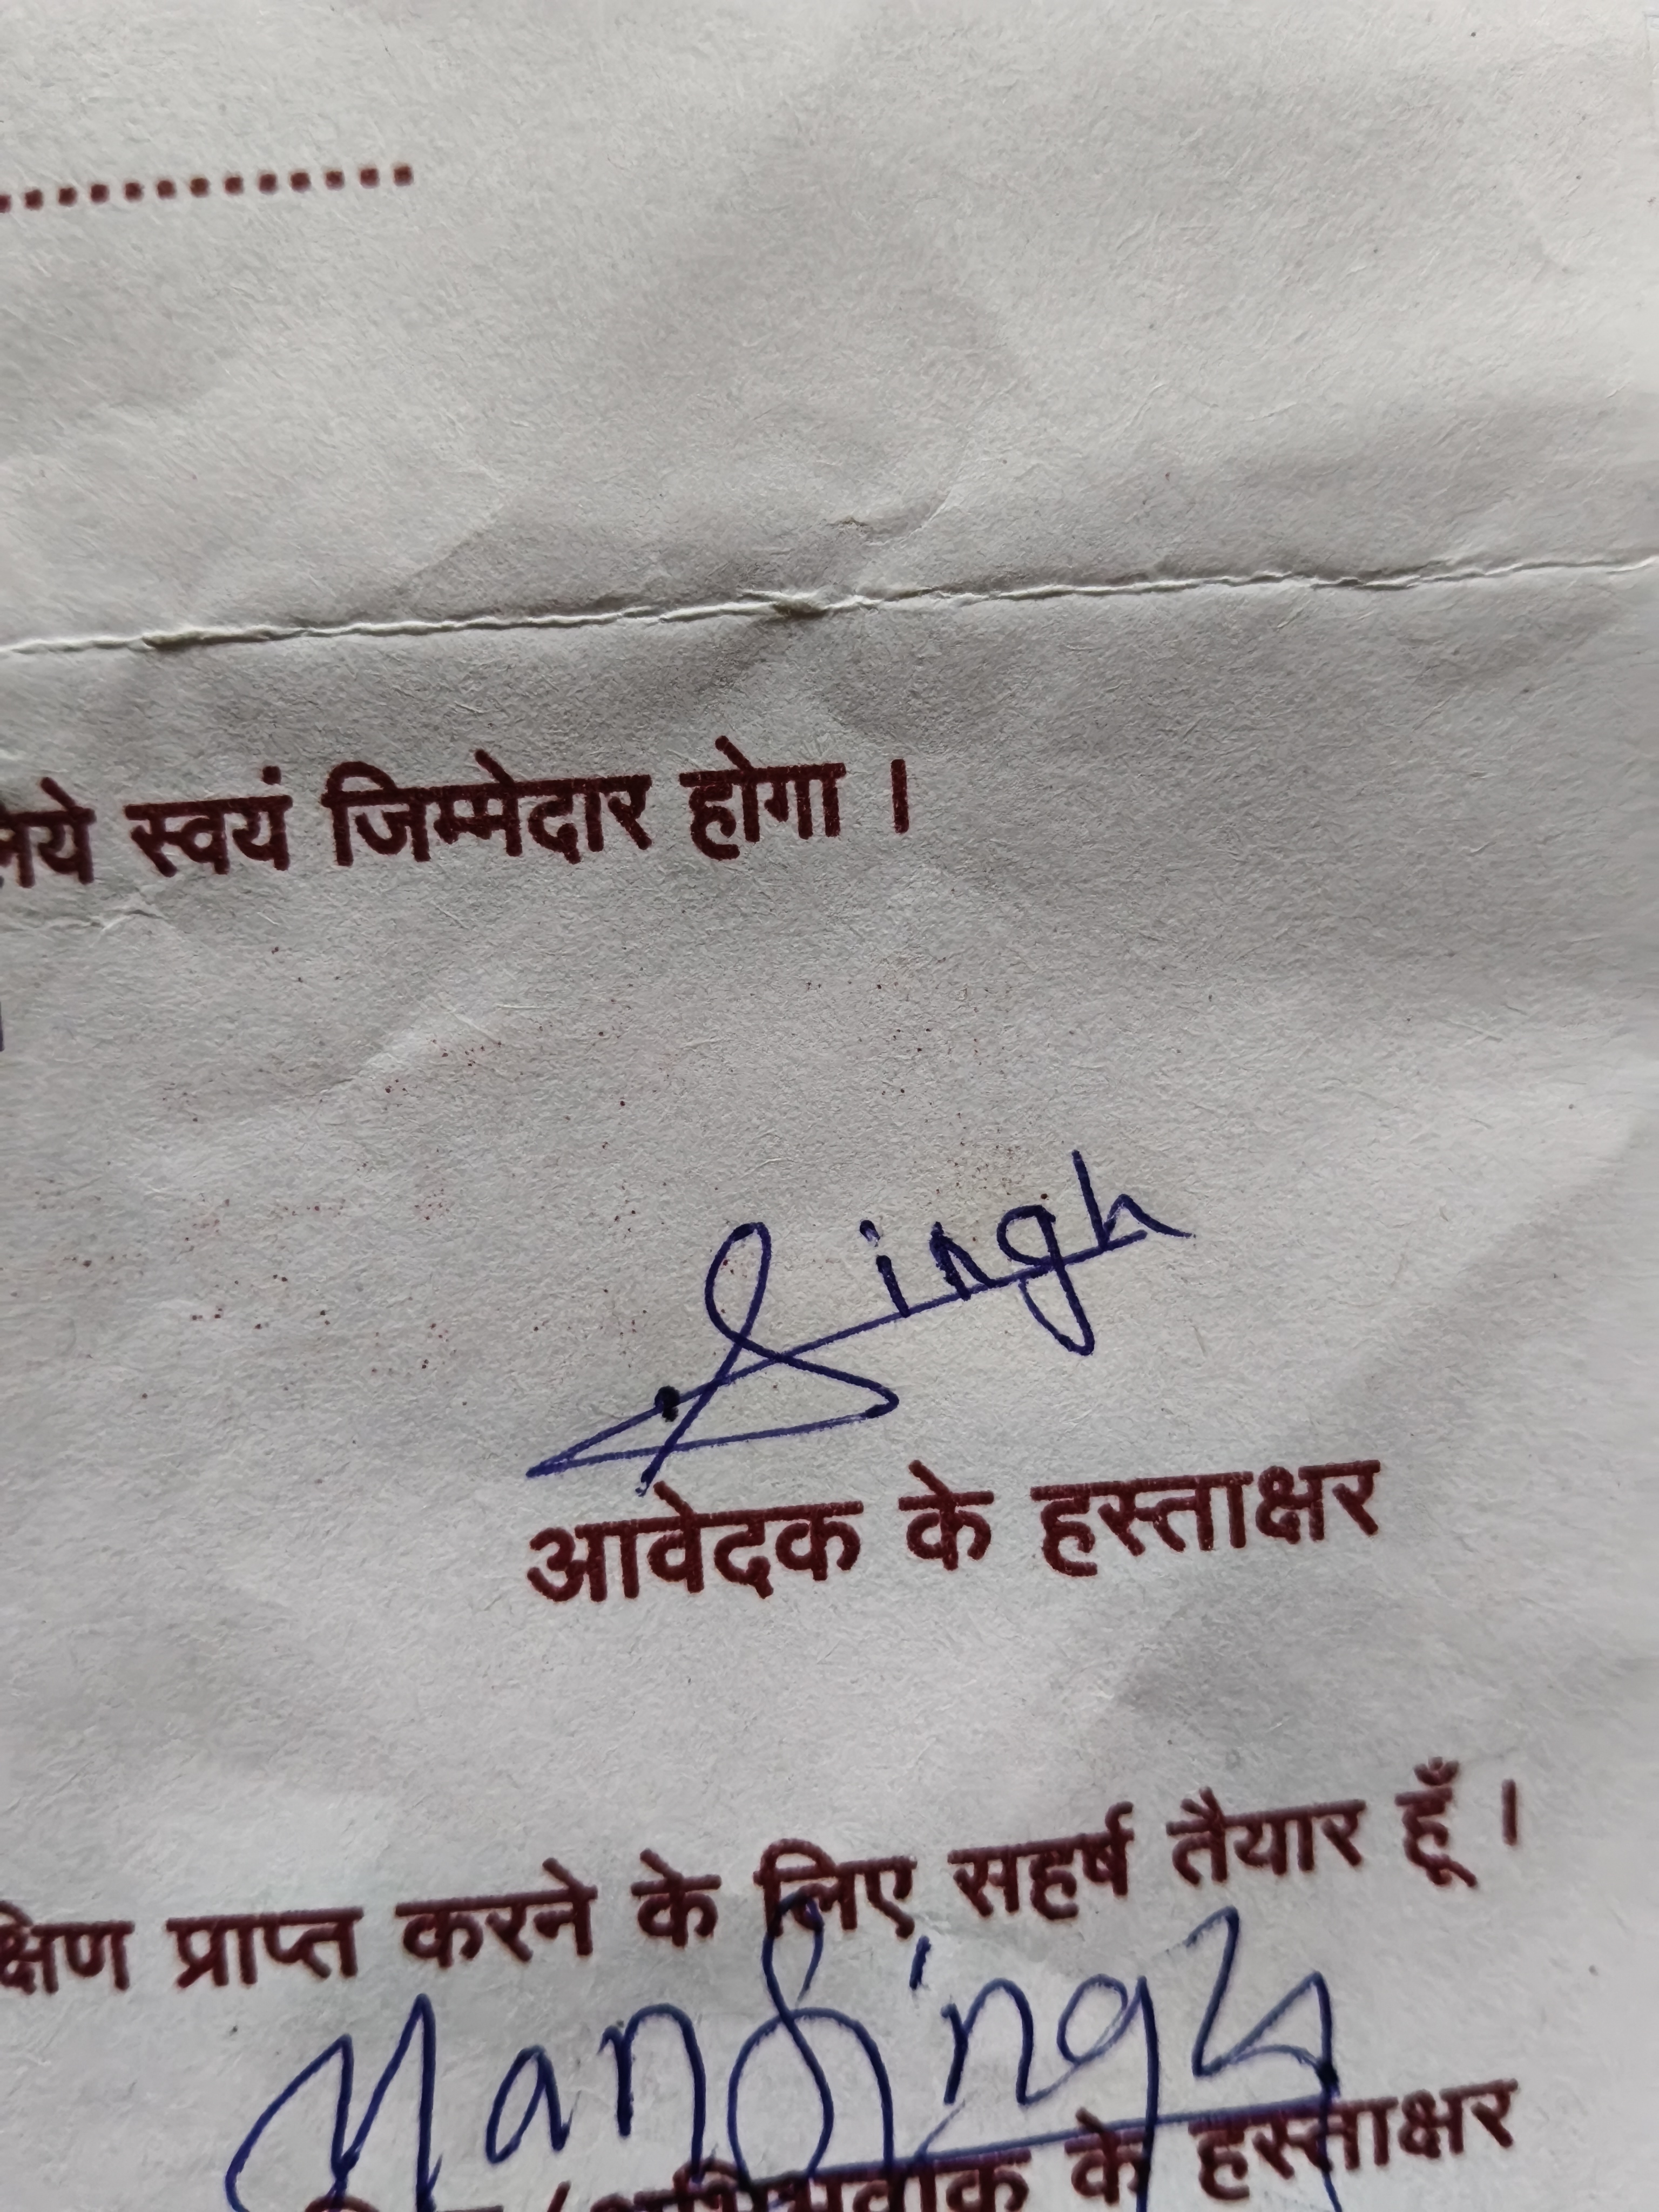 ..............
स्वयं जिम्मेदार होगा ।
Singh
आवेदक के हस्ताक्षर
प्राप्त करने के लिए सहर्ष तैयार हूँ ।
ManSingh
के हस्ताक्षर